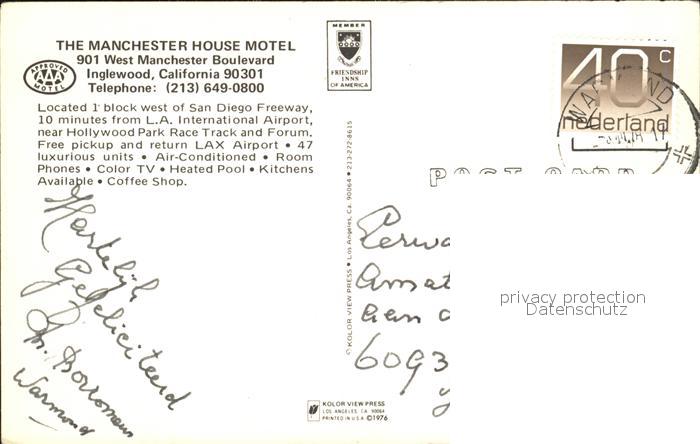 THE MANCHESTER HOUSE MOTEL
901 West Manchester Boulevard
Inglewood, California 90301
Telephone: (213) 649-0800
APPROVED
AAA
MOTEL
Located 1 block west of San Diego Freeway,
10 minutes from L.A. International Airport,
near Hollywood Park Race Track and Forum.
Free pickup and return LAX Airport • 47
luxurious units • Air-Conditioned • Room
Phones • Color TV • Heated Pool • Kitchens
Available • Coffee Shop.
MEMBER
FRIENDSHIP
INNS
OF AMERICA
40 c
nederland
WARMOND
POST CARD
Hartelijk
Gefeliciteerd
Borromeus
Warmond
© KOLOR VIEW PRESS • Los Angeles, Ca. 90064 • 213-272-8615
aan
6093
privacy protection
Datenschutz
KOLOR VIEW PRESS
LOS ANGELES, CA. 90064
PRINTED IN U.S.A. ©1976